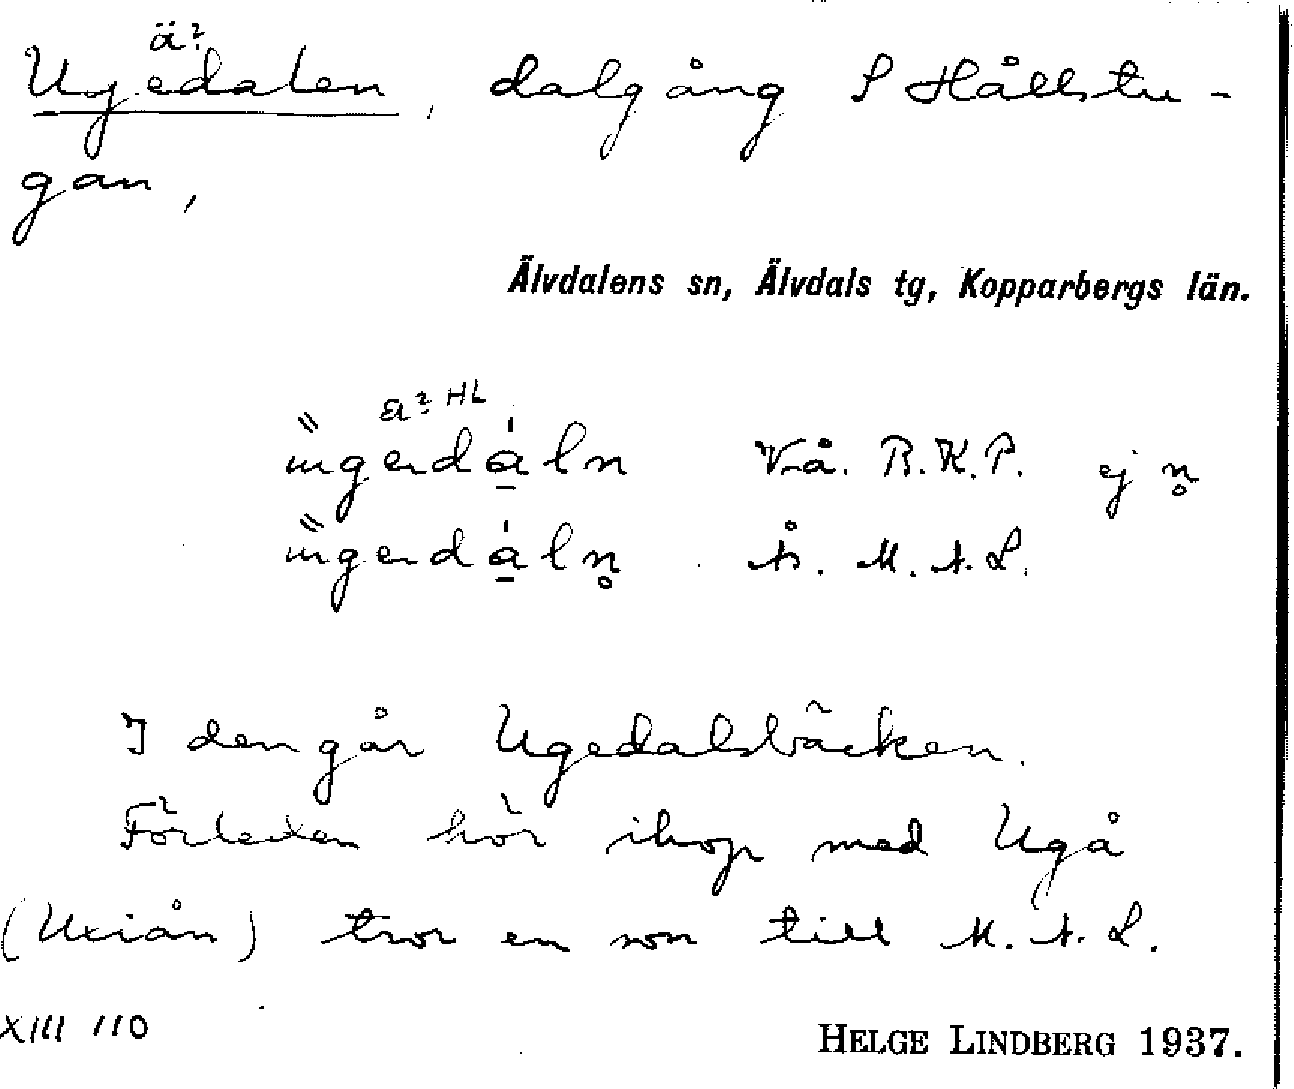 ä?
Ugedalen, dalgång S Hållstu-
gan,
Älvdalens sn, Älvdals tg, Kopparbergs län.
a? HL
V-å. R.K.P. ej n̥
Å. M.A.L.
I den går Ugedalsbäcken.
Förleden hör ihop med Ugå
(Uxiån) tror en son till M.A.L.
XIII 110
HELGE LINDBERG 1937.